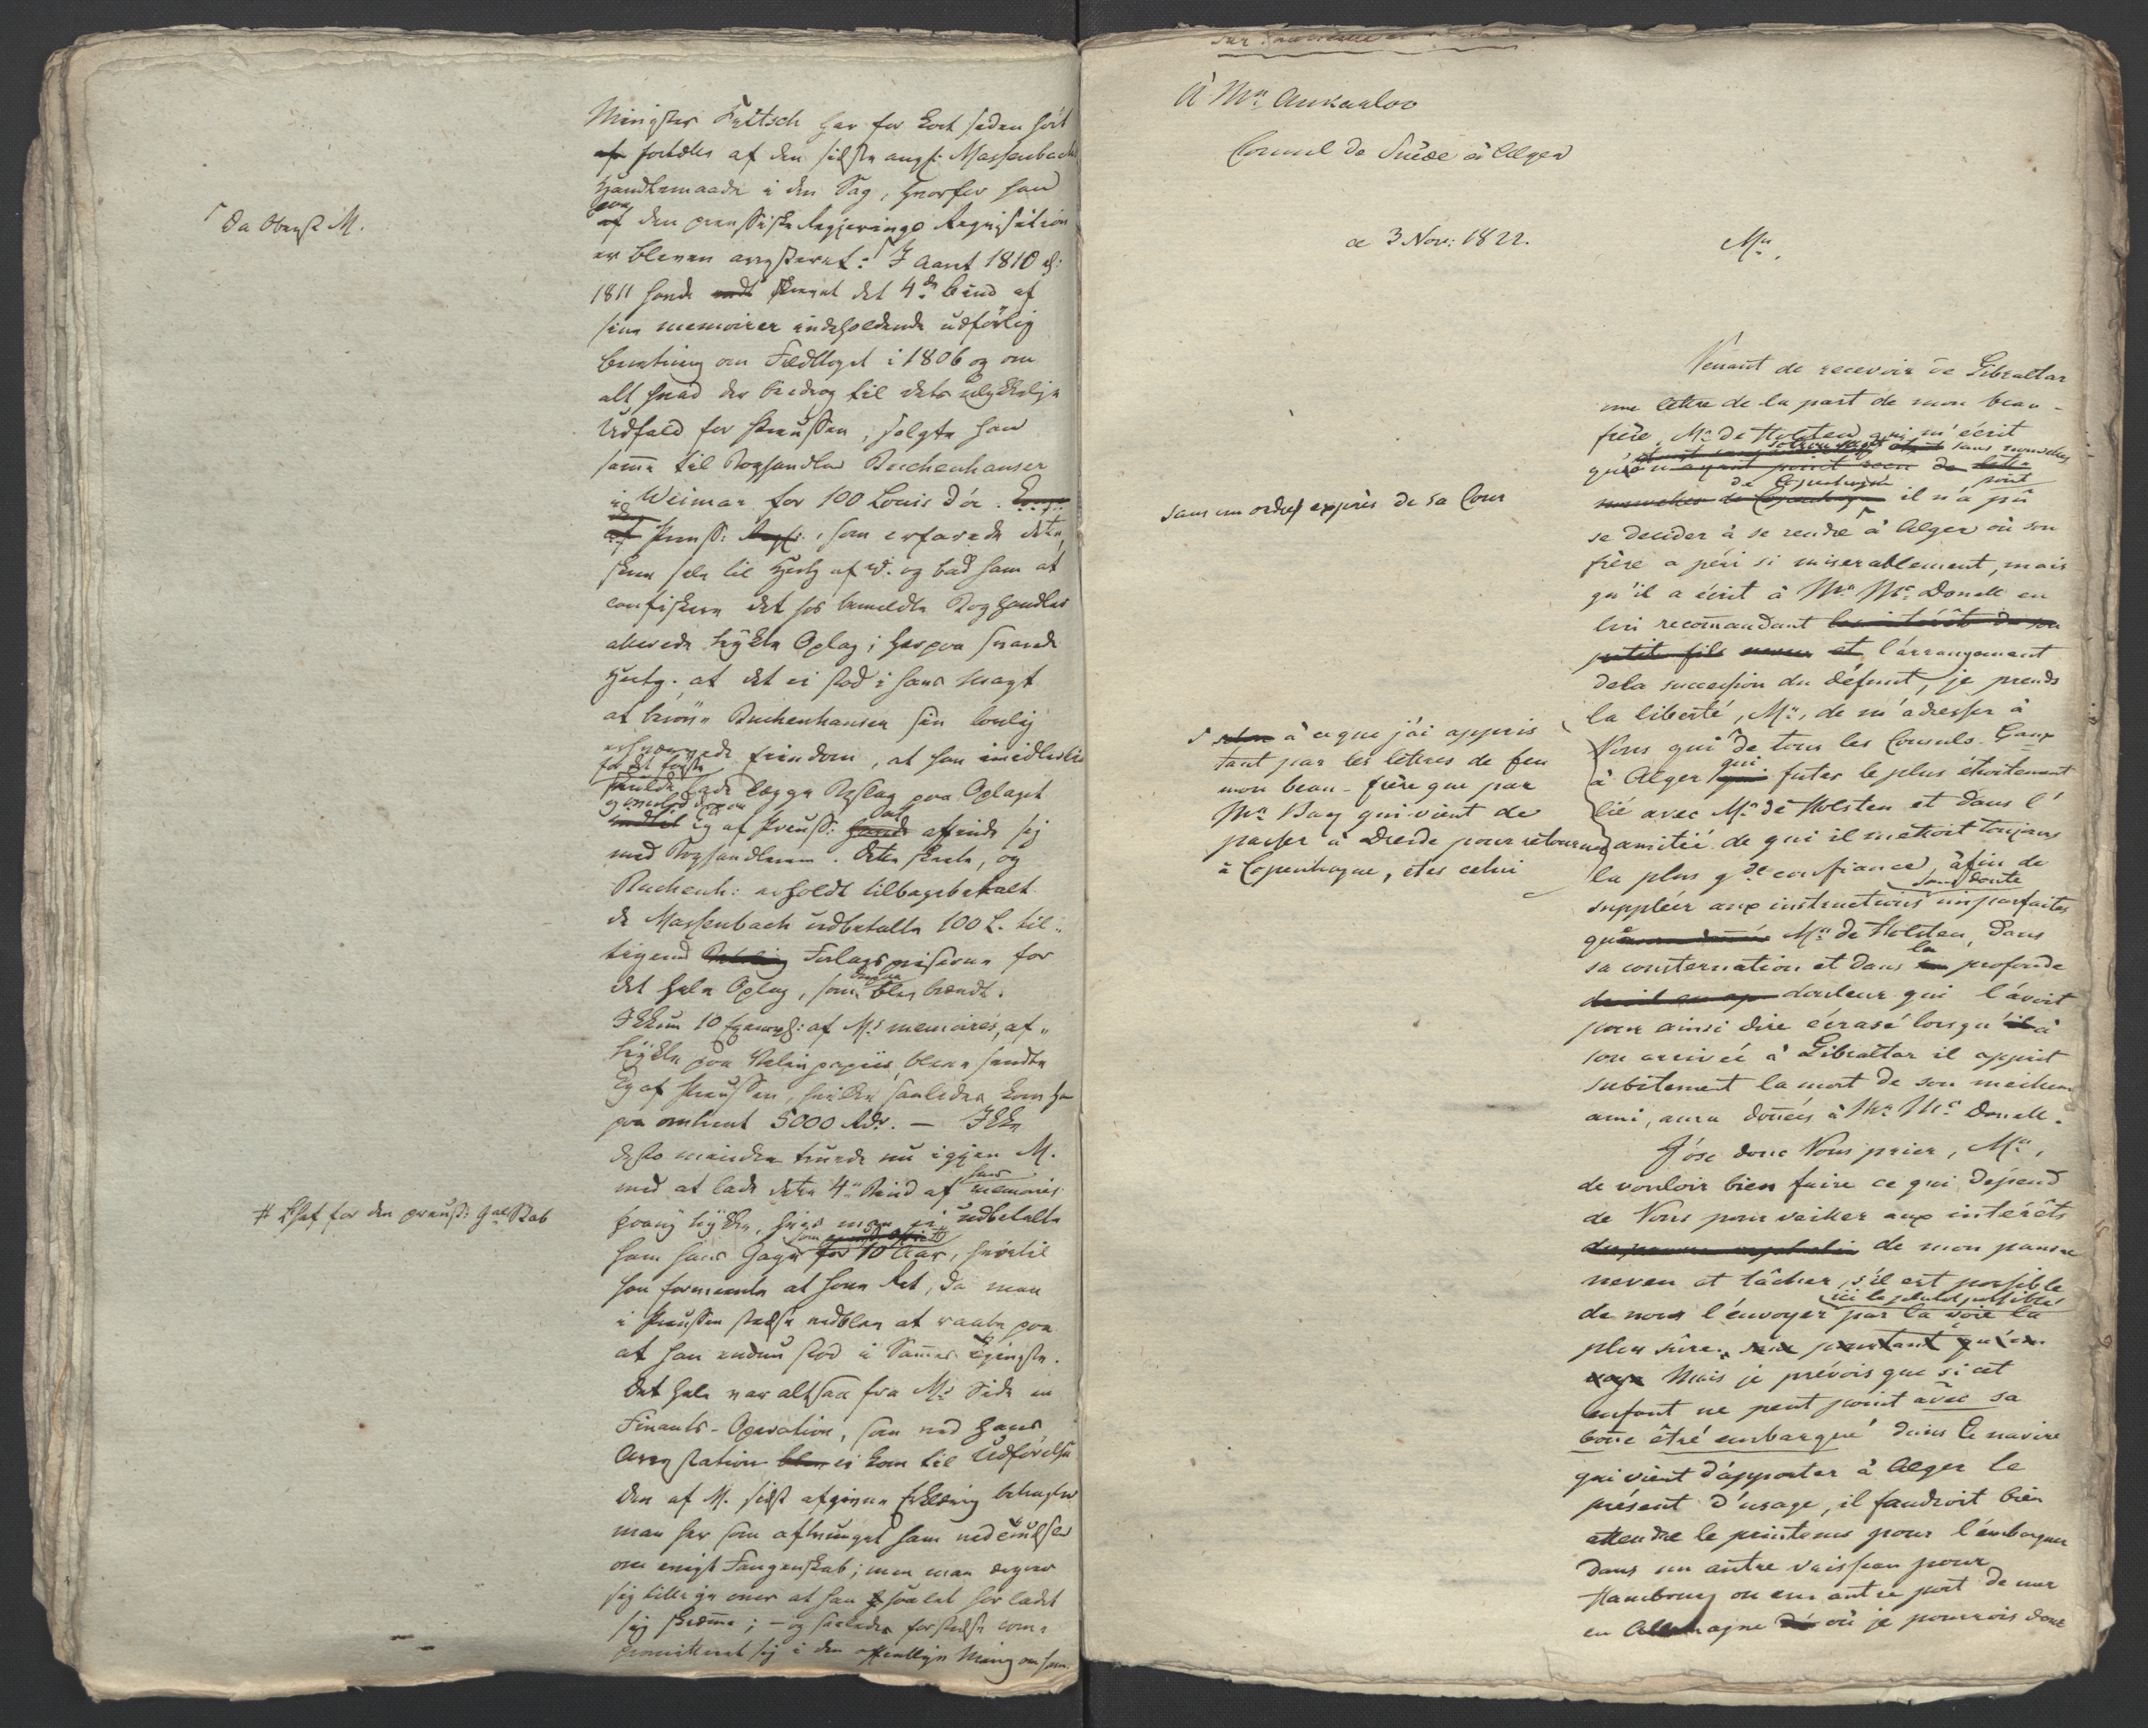 Minister Fritsch har for kort siden hört
fortælles af den sidste angl: Massenbachs
Handlemaade i den Sag, hvorfor han
paa
af den preussiske Regjerings Requisition
er bleven arresteret: I Aaret 1810 el:
1811 havde skrevet det 4de bind af
sine memoirer indeholdende udförlig
beretning om Feldttoget i 1806 og om
alt hvad der bidrog til dets ulykkelige
Udfald for Preussen, solgte han
samme til Boghandler Buchenhauser
i Weimar for 100 Louis d'or.
af Preuss: , som erfarede dette,
skrev selv til Hertz af W. og bad ham at
confiskere det hos bemeldte Boghandler
allerede trykte Oplag; herpaa svarede
Hertg. at det ei stod i hans Magt
at beröve Buchenhauser sin lovlig
erhvervede Eiendom, at han imidlertid
for det förste
lade lægge Beslag paa Oplaget
af Preuss: at affinde sig
med Boghandleren. Dette skete, og
Buchenh: erholdt tilbagebetalt
de Massenbach udbetalte 100 L. til-
ligemed Forlagspriserne for
det hele Oplag, som blev brændt.
Ikkun 10 Exempl: af M.s memoires, af-
trykte paa Velinpapiir bleve sendte
Kg af Preussen, hvilke saaledes kom ham
paa omtrent 5000 Rdr. — Ikke
desto mindre truede nu igjen M.
med at lade dette 4de Bind af hans memoires
paany trykke, hvis man ei udbetalte
ham hans Gage for 10 Aar, hvortil
han formeente at have Ret, da man
i Preussen stedse nedblev at raabe paa
at han endnu stod i Sammes Tjeneste.
Det hele var altsaa fra M.s Side en
Finants-Operation, som ved hans
Arrestation ei kom til Udförelse
Den af M. sidst afgivne Erklæring betragter
man her som aftvunget ham ved Trudsler
om evigt Fangenskab; men man ærgrer
sig tillige over at han saa let har ladet
sig skræmme; – og saaledes for stedse com-
promitteret sig i den offentlige Mening om ham.
Da Oberst M.
# Chef for den preuss: Gnal Stab
À Mr. Ankarloo
Consul de Suède à Alger
ce 3 Nov: 1822.
Mr.,
Venant de recevoir de Gibraltar
une lettre de la part de mon beau-
frère, Mr. de Holsten qui m'écrit
sans nouvelles
qu'n'ayant point reçu de lettre
de Copenhague point
nouvelles de Copenhague il n'a pû
se decider à se rendre à Alger où son
frère a péri si miserablement, mais
qu'il a écrit à Mr. Mc. Donell en
lui recommandant les intérêts de son
petit fils neveu et l'arrangement
dela succession du défunt, je prends
la liberté, Mr., de m'adresser à
Vous qui de tous les Consuls Gaux
à Alger qui futes le plus étroitement
lié avec Mr. de Holsten et dans l'
amitié de qui il mettoit toujours
la plus gde confiance, àfin de
sans doute
suppléer aux instructions imparfaites
que Mr. de Holsten, dans
la
sa consternation et dans profonde
douleur qui l'avoit
pour ainsi dire écrasé lorsqu'il à
son arrivée à Gibraltar il apprit
subitement la mort de son meilleur
ami, aura données à Mr. Mc Donell.
J'ose donc Vous prier, Mr.,
de vouloir bien faire ce qui dépend
de Vous pour veiller aux intérêts
du pauvre orphelin de mon pauvre
neveu et tâcher, s'il est possible
ici le plutot possible
de nous l'envoyer par la voie la
plus sûre. pourtant qu'on
Mais je prévois que si cet
enfant ne peut point avec sa
bonne être embarqué dans le navire
qui vient d'apporter à Alger le
présent d'usage, il faudroit bien
attendre le printems pour l'embarquer
dans un autre vaisseau pour
Hambourg ou un autre port de mer
en Allemagne où je pourrois donc
sans un ordre exprès de sa Cour
selon à ce que j'ai appris
tant par les lettres de feu
mon beau-frère que par
Mr. Bay qui vient de
passer à Dresde pour retourner
à Copenhague, êtes celui